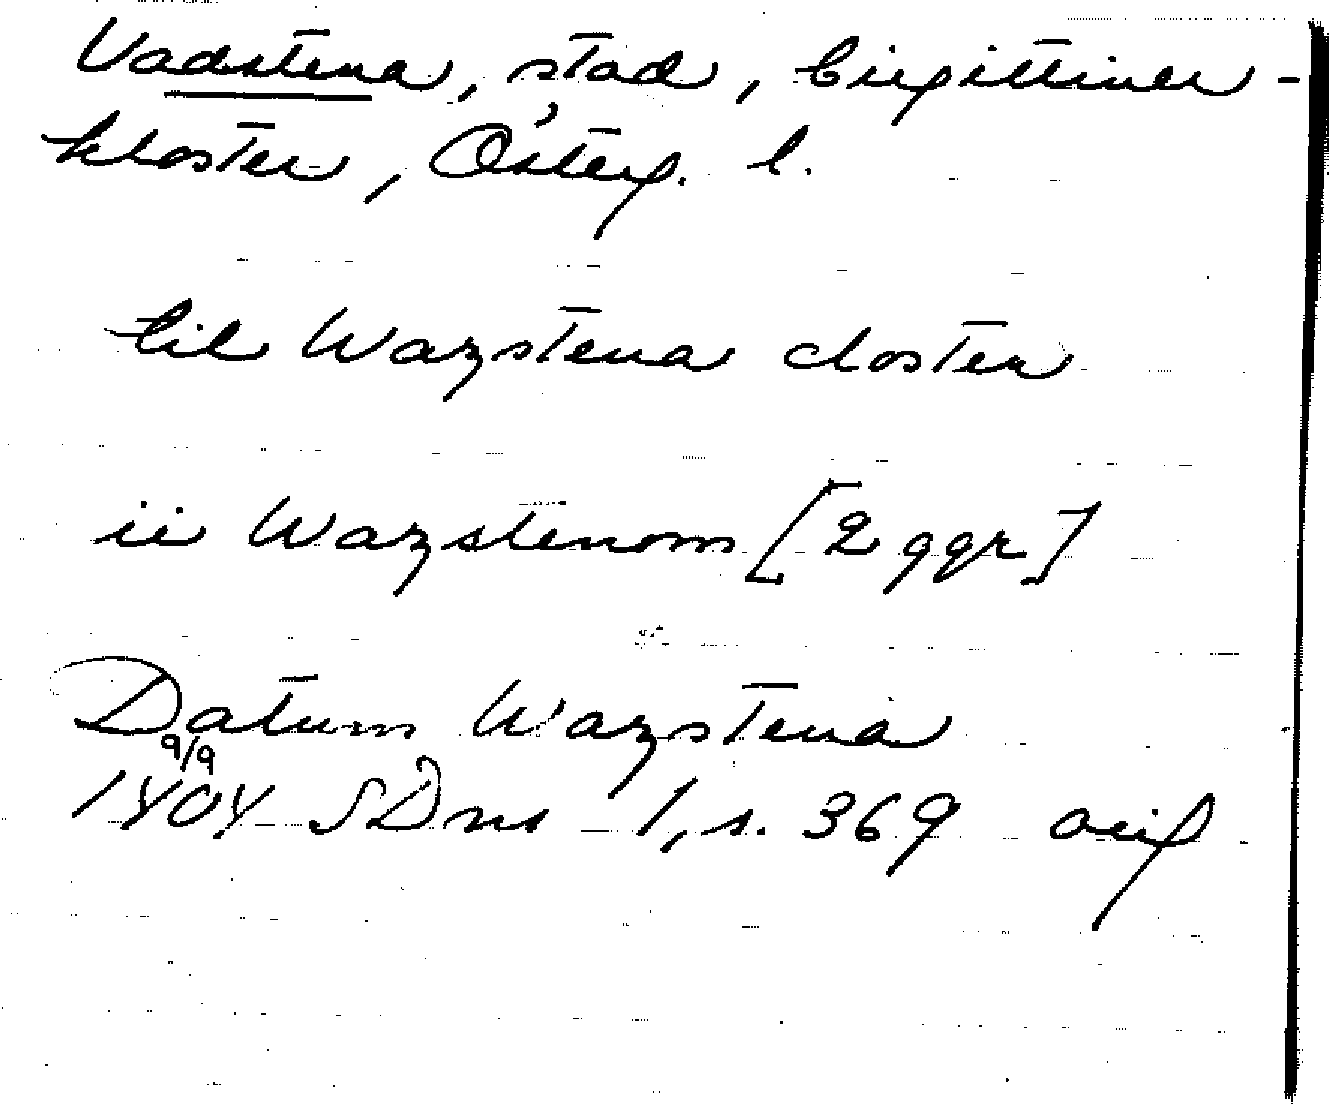 Vadstena, stad, birgittiner-
kloster, Österg. l.
til Wazstena closter
ii Wazstenom [2 ggr]
Datum Wazstena
9/9
1404 SDns 1, s. 369 orig